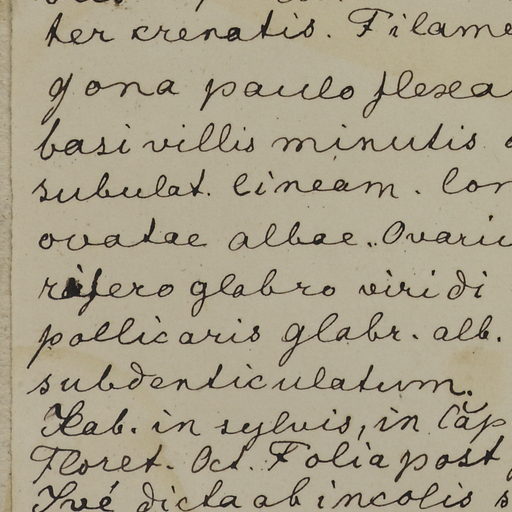 ter crenatis. Filame
gona paulo flexa
basi villis minutis
subulat. lineam. lon
ovatae albae. Ovariu
glabro viridi
pollicaris glabr. alb.
subdenticulatum.
Hab. in sylvis, in Căp
Floret. Oct. Folia post
Ivé dicta ab incolis s